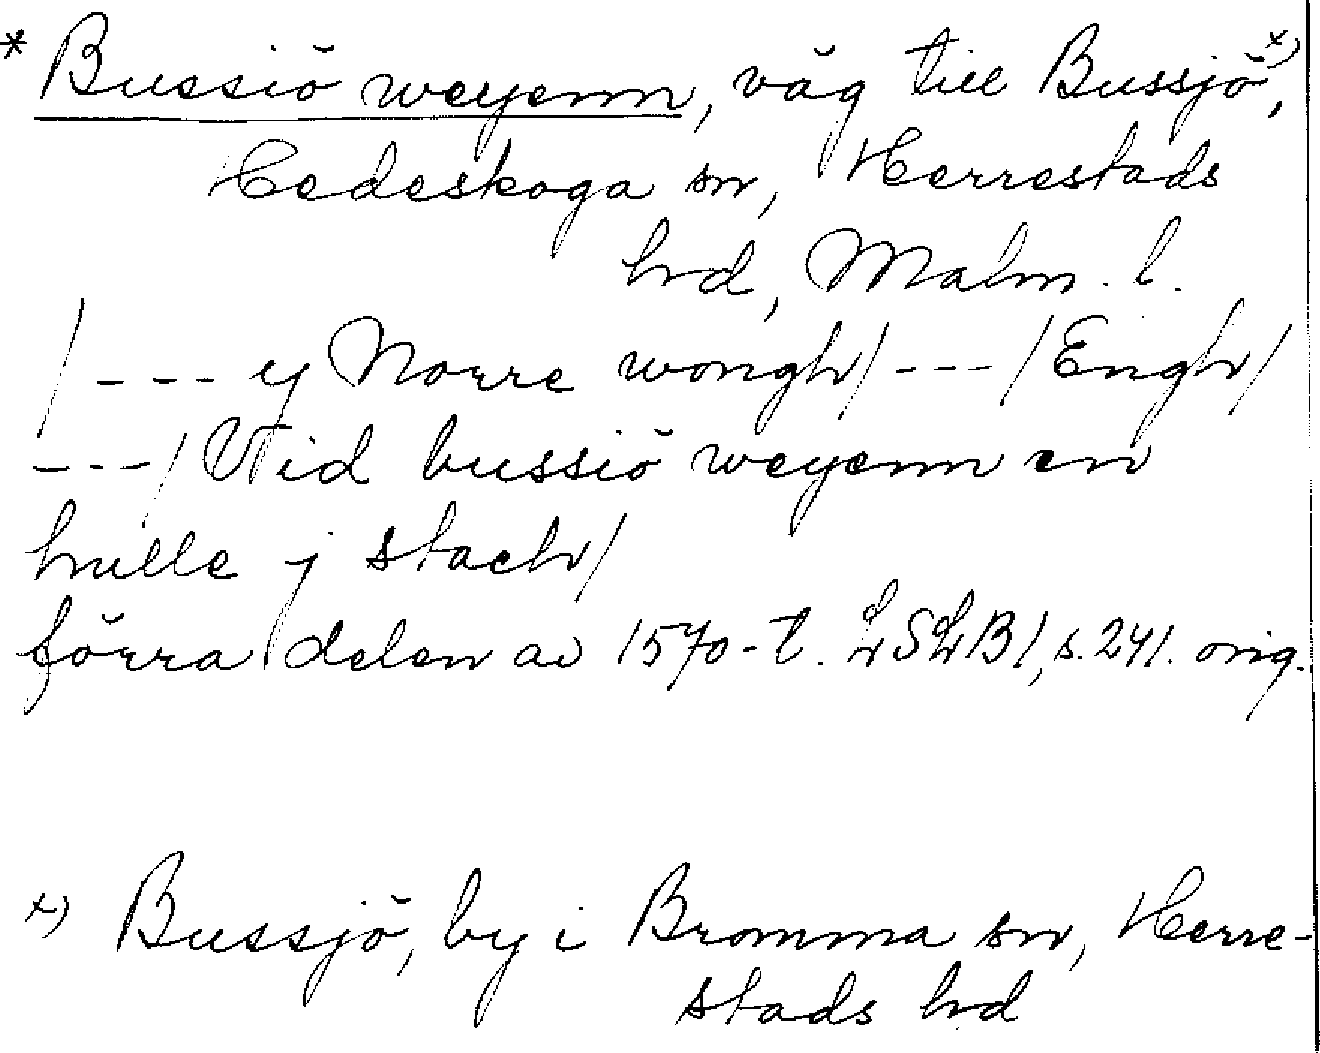 * Bussiö weyenn, väg till Bussjö x),
Hedeskoga sn, Herrestads
hd, Malm. l.
/--- y Norre wongh/ --- /Engh/
---/ Vid bussiö weyenn en
hulle j stach/
förra delen av 1570-t. LSLB1, s. 241. orig.
x) Bussjö, by i Bromma sn, Herre-
stads hd